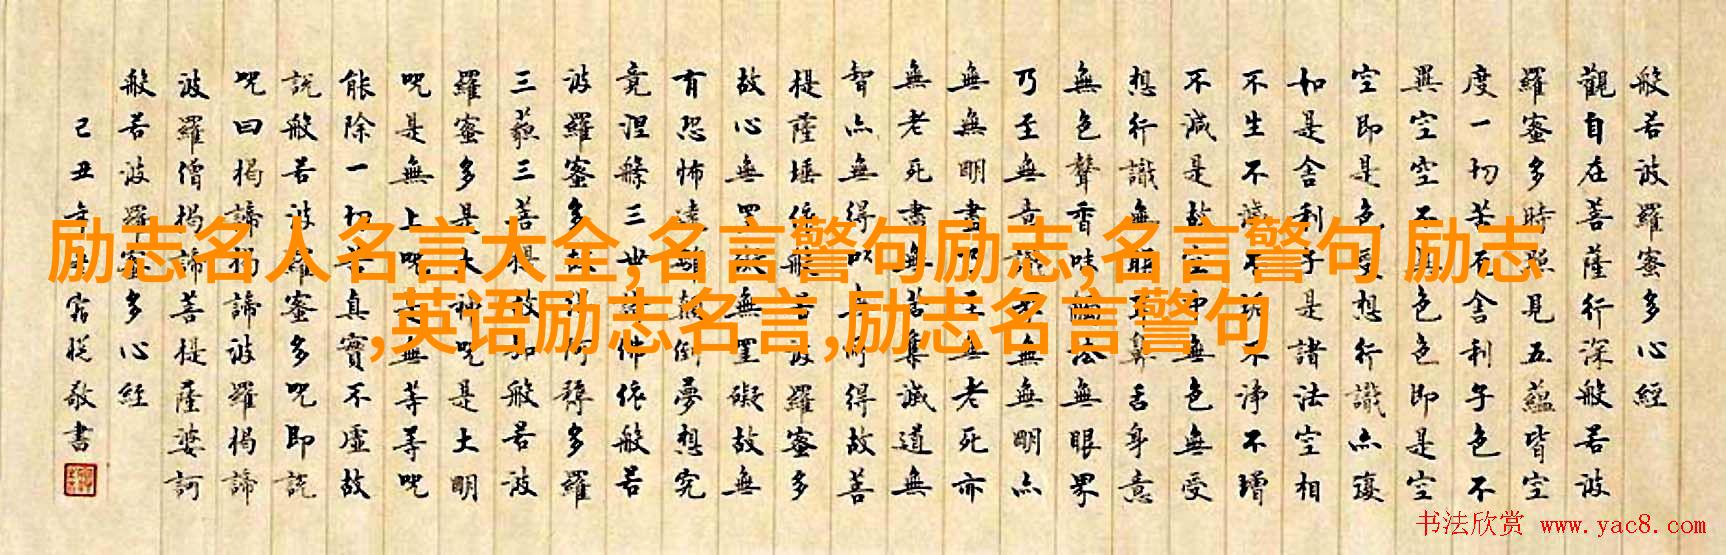 励志名人名言大全,名言警句励志,名言警句 励志
,英语励志名言,励志名言警句
般若波羅蜜多心経
觀自在菩薩行深般若波
羅蜜多時照見五蘊皆空
度一切苦厄舍利子色不
異空空不異色色即是空
空即是色受想行識亦復
如是舍利子是諸法空相
不生不滅不垢不淨不增
不減是故空中無色無受
想行識無眼耳鼻舌身意
無色聲香味觸法無眼界
乃至無意識界無無明亦
無無明盡乃至無老死亦
無老死盡無苦集滅道無
智亦無得以無所得故菩
提薩埵依般若波羅蜜多
故心無罣礙無罣礙故無
有恐怖遠離顛倒夢想究
竟涅槃三世諸佛依般若
波羅蜜多故得阿耨多羅
三藐三菩提故知般若波
羅蜜多是大神咒是大明
咒是無上咒是無等等咒
能除一切苦真實不虛故
說般若波羅蜜多咒即說
咒曰揭諦揭諦波羅揭諦
波羅僧揭諦菩提薩婆訶
般若波羅蜜多心経
己丑年敬書
书法欣赏 www.yac8.com